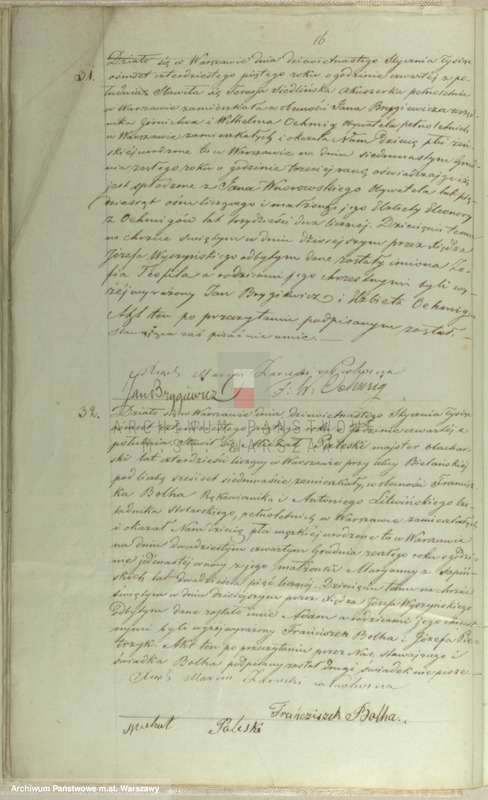 16
31.
Działo się w Warszawie dnia dziewiętnastego Stycznia tysiąc
ośmset czterdziestego piątego roku o godzinie czwartéj z po-
łudnia. Stawiła się Teressa Siedlińska Akuszerka pełnoletnia
w Warszawie zamieszkała w obecności Jana Brygiewicza
Górnictwa i Wilhelma Oehmig Obywatela pełnoletnich
w Warszawie zamieszkałych i okazała Nam dziecię płci żeń-
skiéj urodzone tu w Warszawie na dniu siedmnastym
zeszłego roku o godzinie trzeciéj rano, oświadczając iż
jest spłodzone z Jana Obywatela lat
ośm liczącego i małżonki jego Elżbiety Eleonory
z Oehmigów lat trzydzieści dwa liczącéj. Dziecięciu temu
na chrzcie świętym w dniu dzisiejszym przez Xiędza
Józefa Wyszyńskiego odbytym dane zostały imiona Zo-
fia Teofila a rodzicami jego chrzestnymi byli wy-
żéj wyrażony Jan Brygiewicz i Elżbieta Oehmig.
Akt ten po przeczytaniu podpisanym został.
Stawająca zaś pisać nie umie.
Xiądz
Jan Brygiewicz F. W. Oehmig
ARCHIWUM PAŃSTWOWE
M.ST. WARSZAWY
32.
Działo się w Warszawie dnia dziewiętnastego Stycznia tysiąc
ośmset czterdziestego piątego roku o godzinie czwartéj z
południa. Stawił się Michał Paleski majster
lat czterdzieści liczący w Warszawie przy ulicy Bielańskiéj
pod liczbą sześćset siedmnaście zamieszkały, w obecności Francisz-
ka Bolha Rękawicznika i Antoniego Litwińskiego Cze-
ladnika Stolarskiego, pełnoletnich w Warszawie zamieszkałych
i okazał Nam dziecię płci męzkiéj urodzone tu w Warszawie
na dniu dwudziestym czwartym Grudnia zeszłego roku o godzi-
nie jedenastéj w nocy z jego małżonki Maryanny z
lat dwadzieścia pięć liczącéj. Dziecięciu temu na chrzcie
świętym w dniu dzisiejszym przez Xiędza Józefa Wyszyńskiego
odbytym dane zostało imie Adam a rodzicami jego chrzest-
nymi byli wyżéj wyrażony Franciszek Bolha i Józefa Pie-
trzyk. Akt ten po przeczytaniu przez Nas, Stawającego i
świadka Bolha podpisany został drugi świadek nie pisze.
Xiądz
Frańcziszek Bolha.
Michał Paleski
Archiwum Państwowe m.st. Warszawy